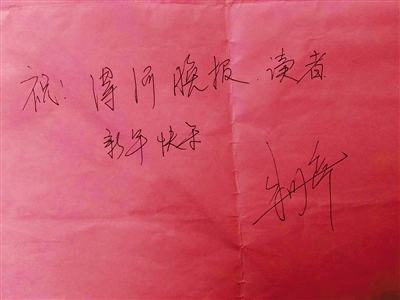 祝!漯河晚报.读者
新年快乐